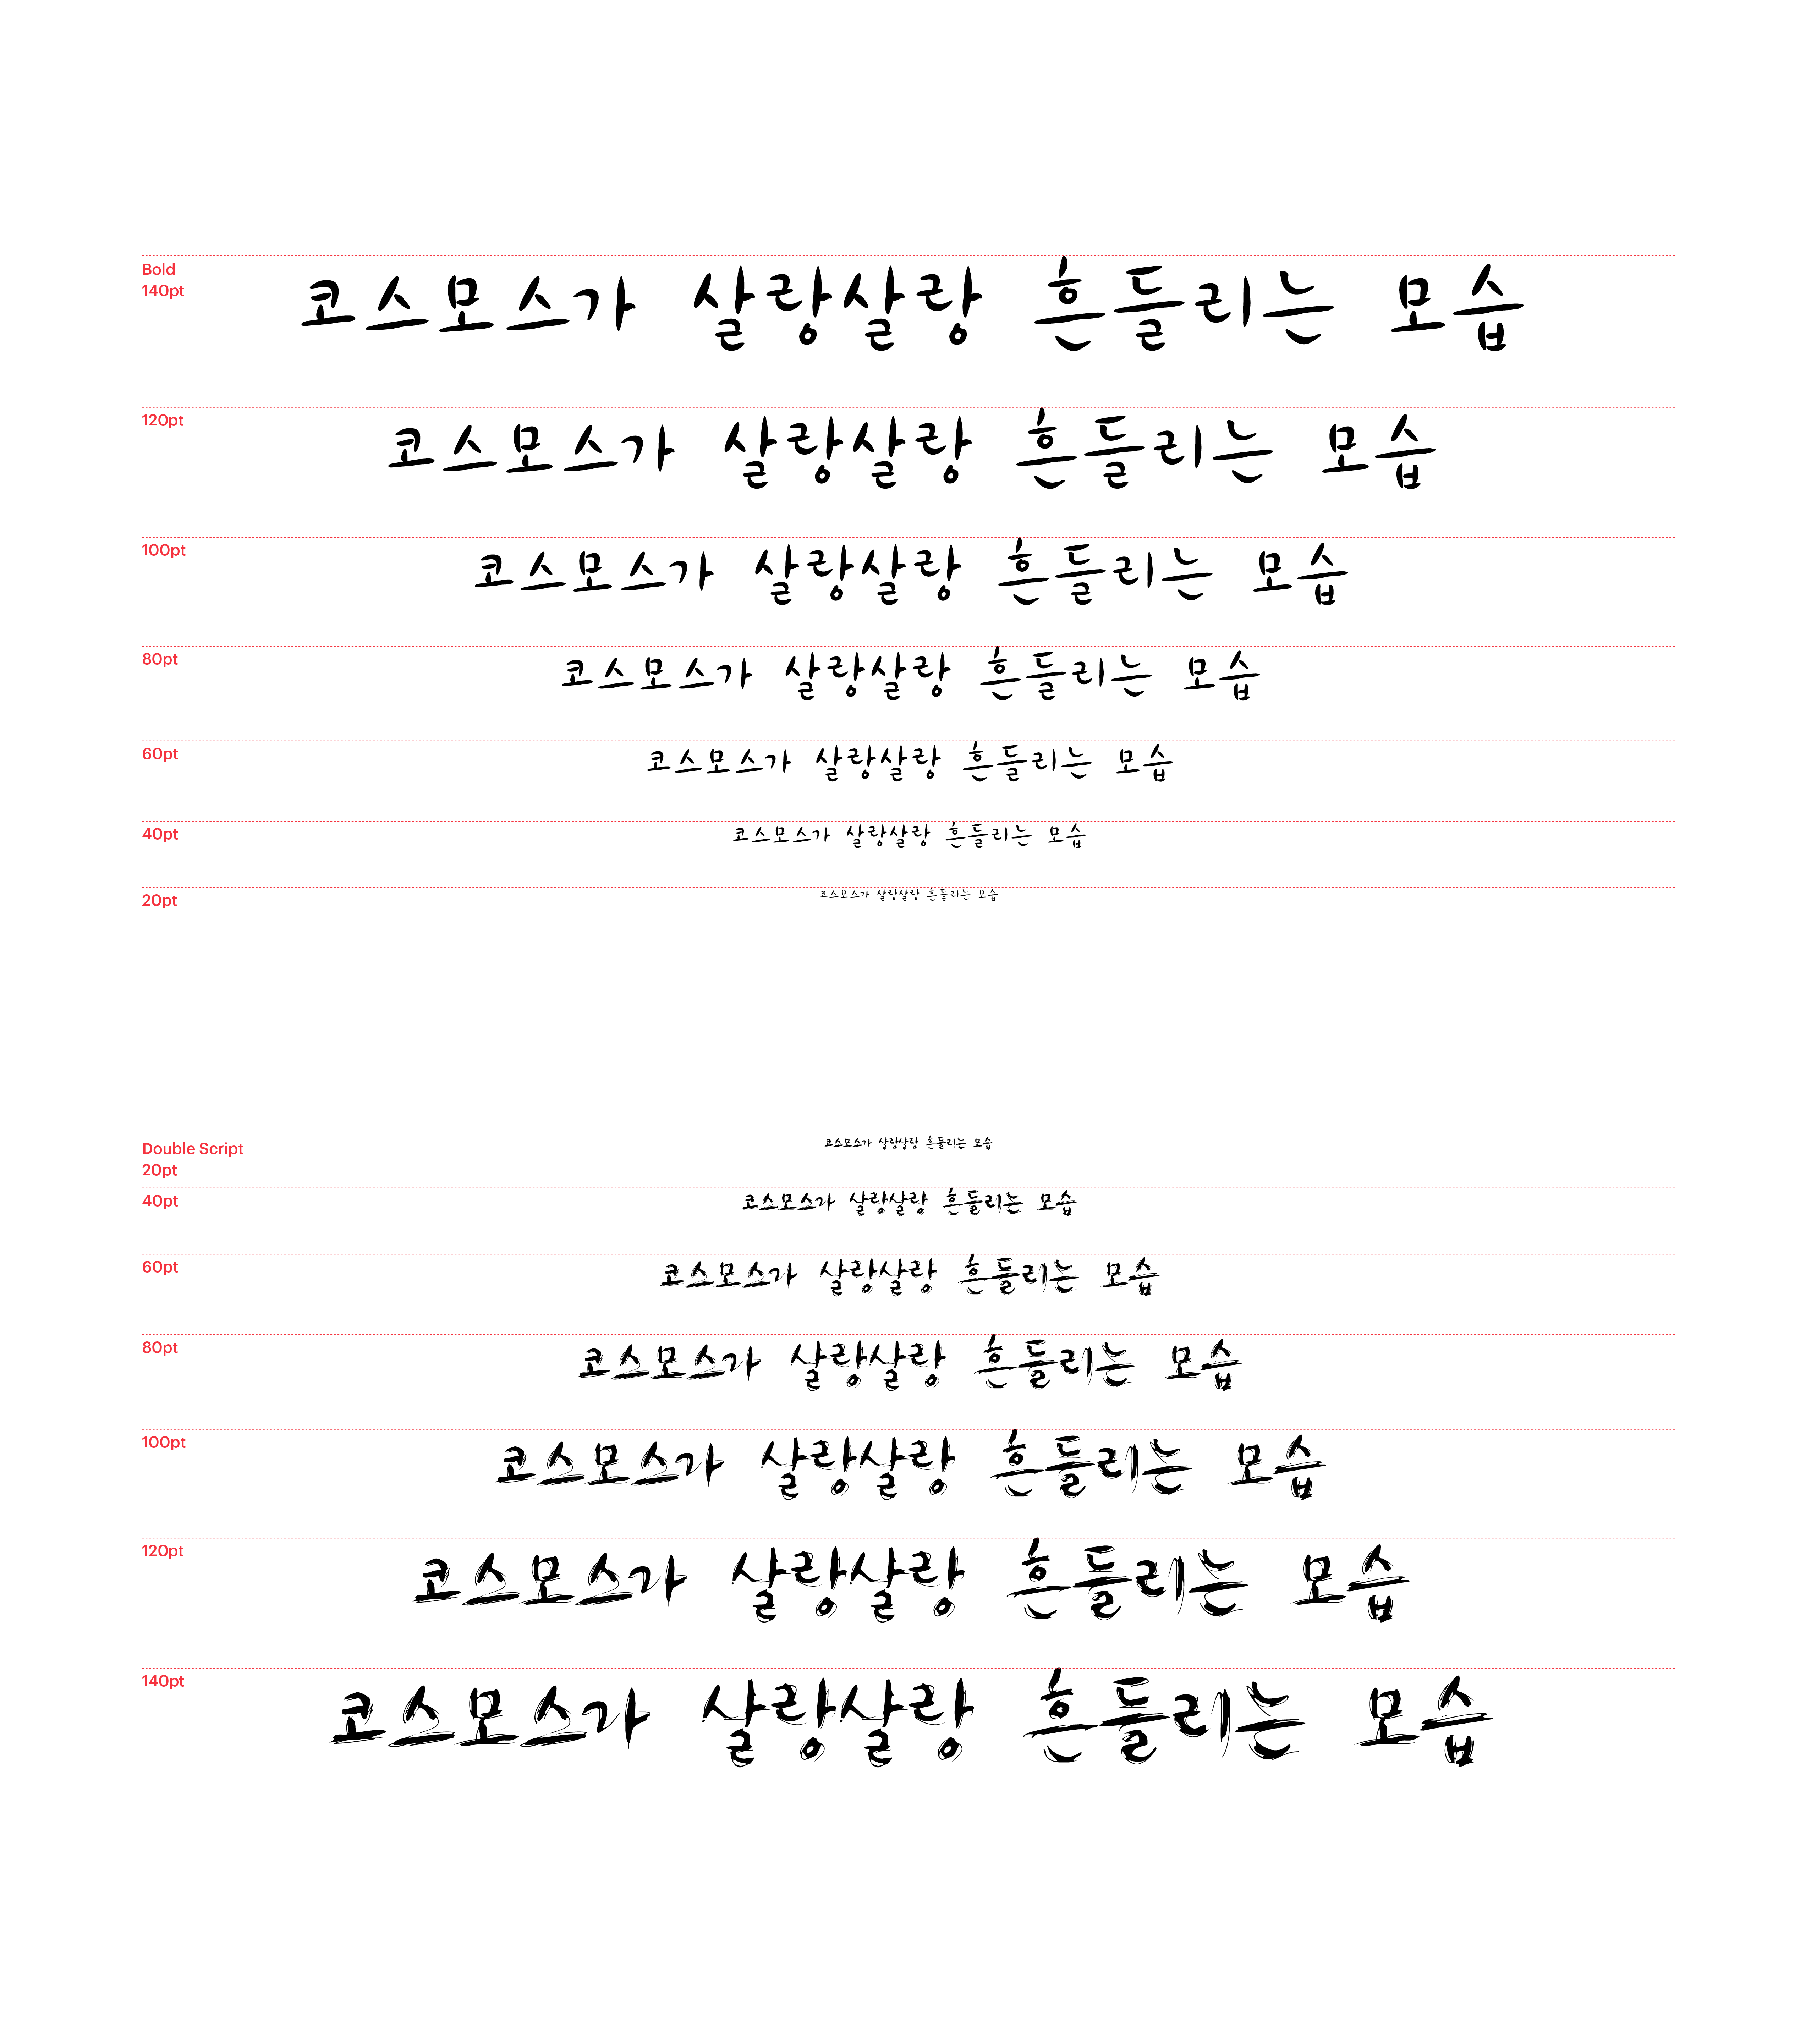 Bold
140pt 코스모스가 살랑살랑 흔들리는 모습
120pt 코스모스가 살랑살랑 흔들리는 모습
100pt 코스모스가 살랑살랑 흔들리는 모습
80pt 코스모스가 살랑살랑 흔들리는 모습
60pt 코스모스가 살랑살랑 흔들리는 모습
40pt 코스모스가 살랑살랑 흔들리는 모습
20pt 코스모스가 살랑살랑 흔들리는 모습
Double Script
20pt 코스모스가 살랑살랑 흔들리는 모습
40pt 코스모스가 살랑살랑 흔들리는 모습
60pt 코스모스가 살랑살랑 흔들리는 모습
80pt 코스모스가 살랑살랑 흔들리는 모습
100pt 코스모스가 살랑살랑 흔들리는 모습
120pt 코스모스가 살랑살랑 흔들리는 모습
140pt 코스모스가 살랑살랑 흔들리는 모습